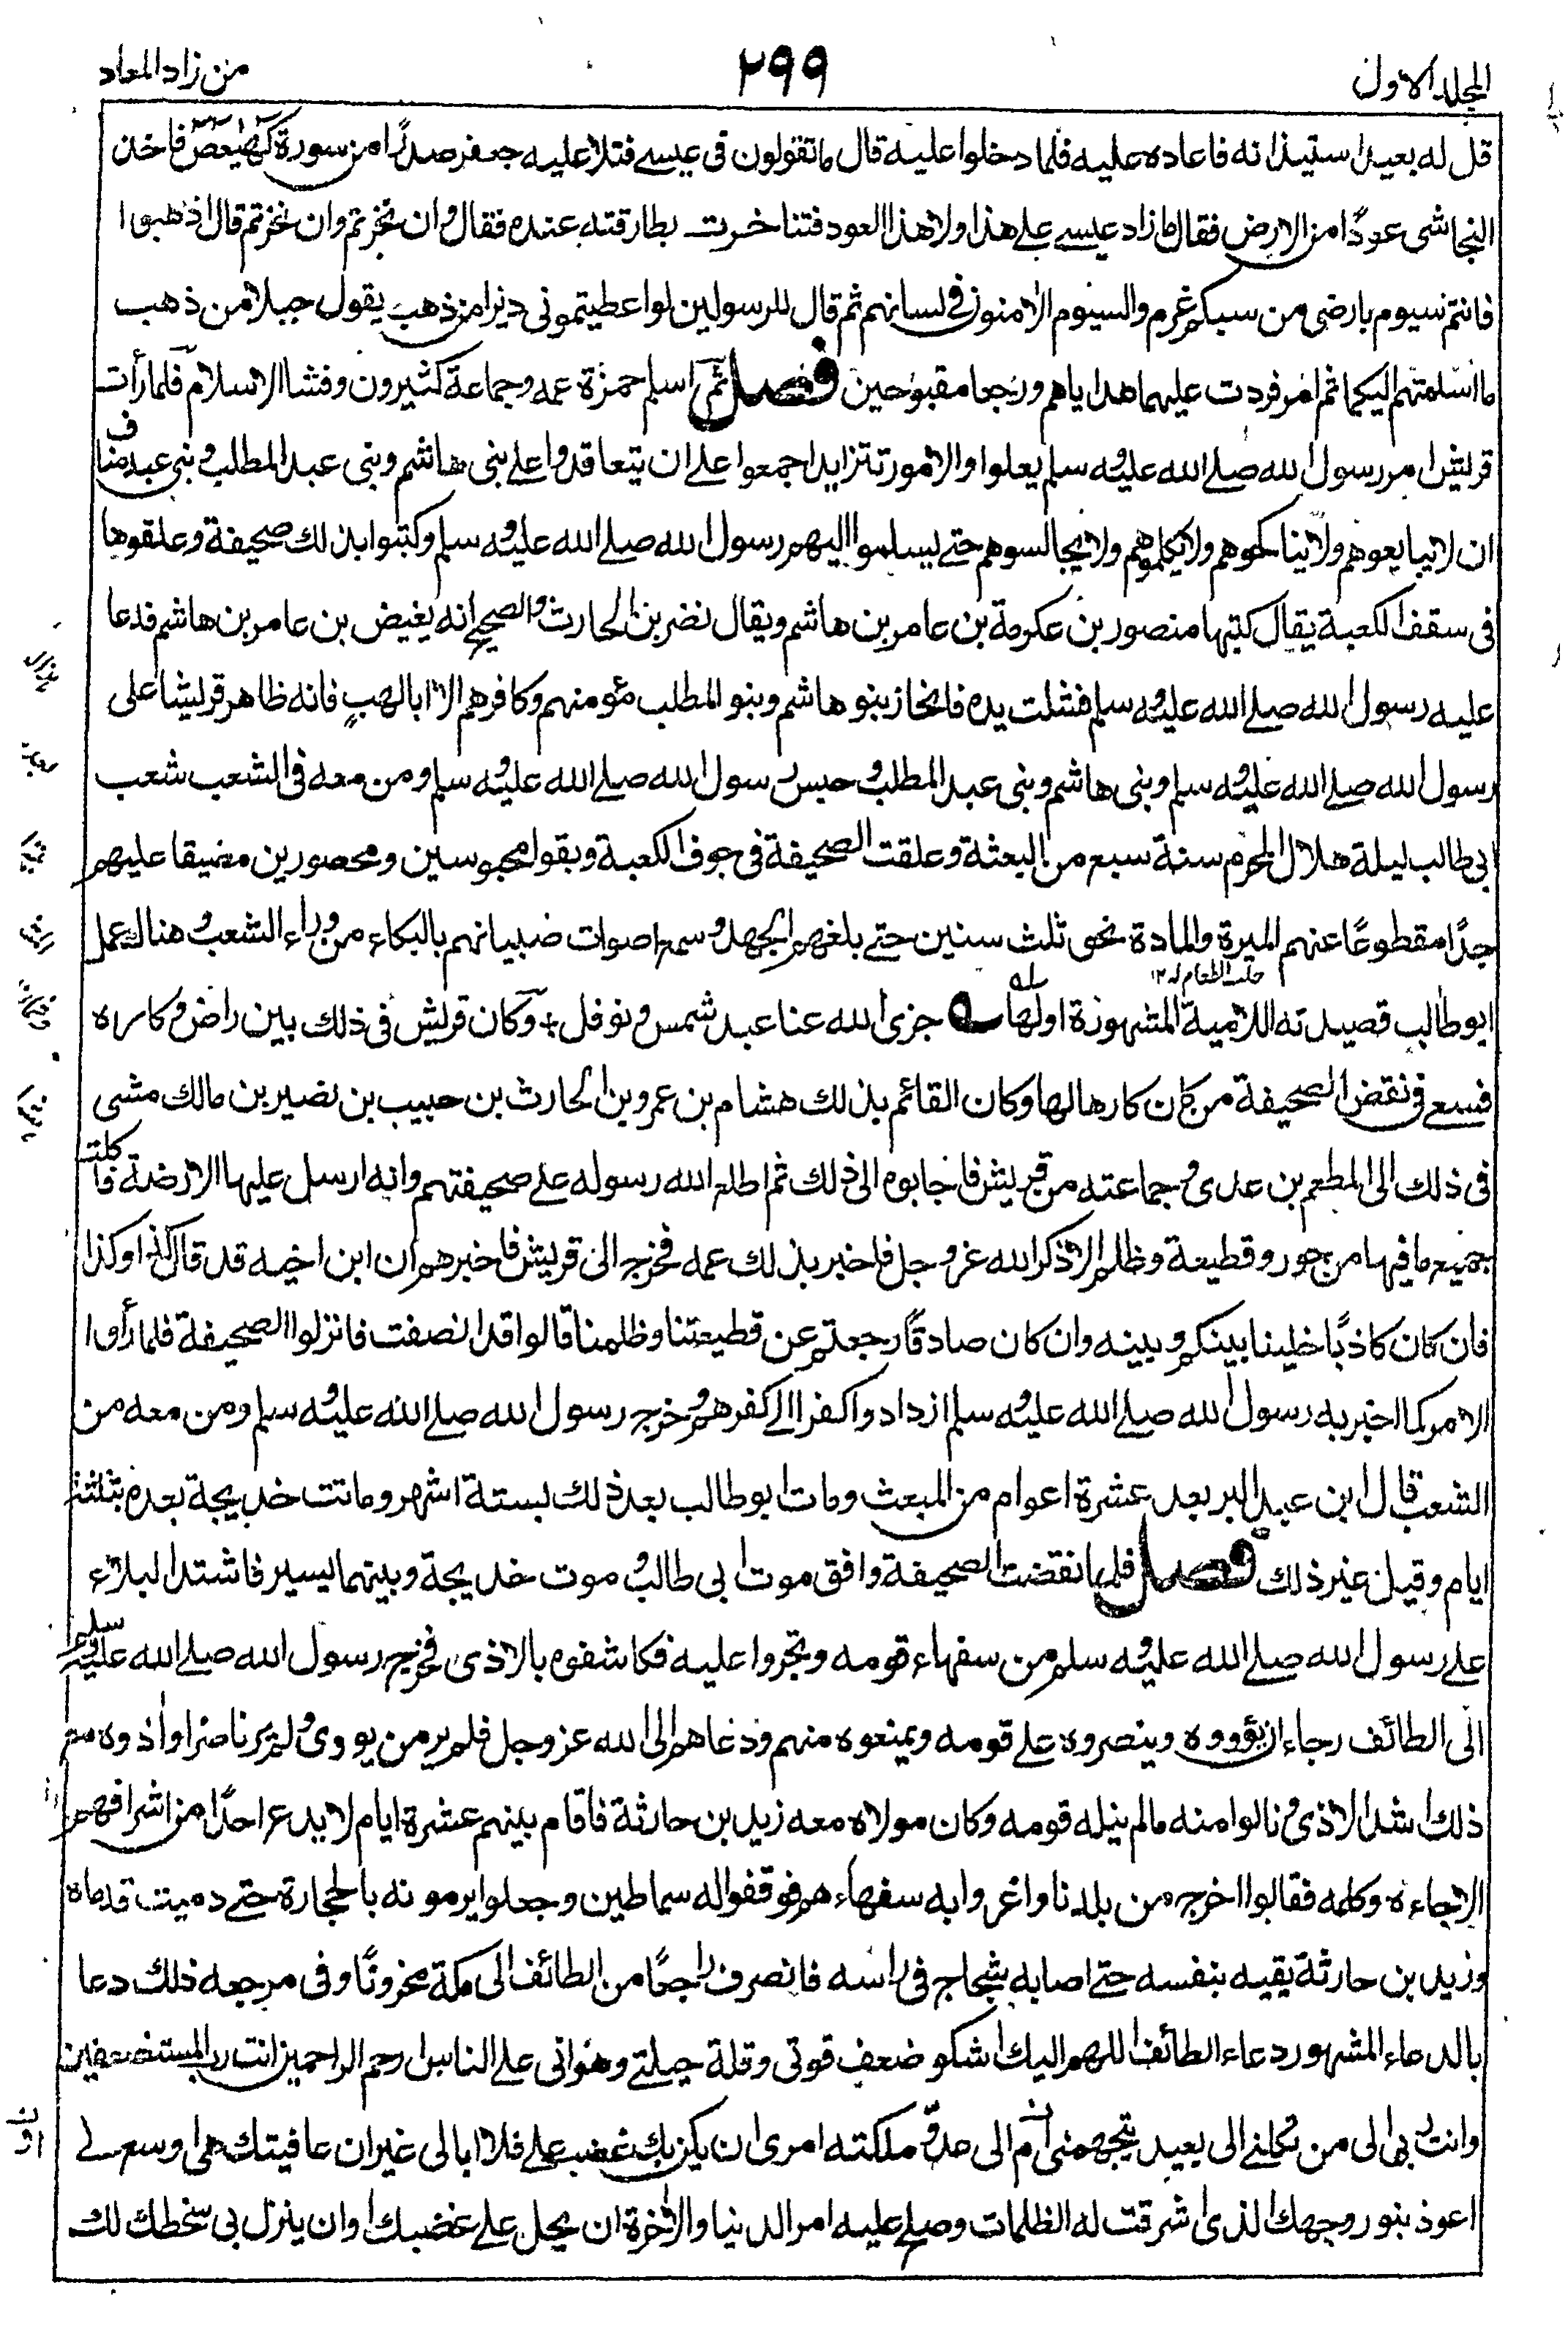 المجلد الاول
٢٩٩
من زاد المعاد
قل له بعيد استيذانه فاعاده عليه فلما دخلوا عليه قال ما تقولون فى عيسے فتلا عليه جعفر صدرًا من سورة كهيعص فاخذ
النجاشى عودًا من الارض فقال ما زاد عيسے علے هذا ولا هذا العود فتناخرت بطارقته عنده فقال وان نخرتم وان نخرتم قال اذهبوا
فانتم سيوم بارضى من سبكم غرم والسيوم الامنون فى لسانهم ثم قال للرسولين لو اعطيتمونى دبرا من ذهب يقول جبلا من ذهب
ما اسلمتهم اليكما ثم امر فردت عليهما هداياهم ورجعا مقبوحين فصل ثم اسلم حمزة عمه وجماعة كثيرون وفشا الاسلام فلما رأت
قريش امر رسول الله صلے الله عليه وسلم يعلوا والامور تتزايد اجمعوا علے ان يتعاقدوا علے بنى هاشم وبنى عبد المطلب وبنى عبد مناف
ان لا يبايعوهم ولا يناكحوهم ولا يكلموهم ولا يجالسوهم حتے يسلموا اليهم رسول الله صلے الله عليه وسلم وكتبوا بذلك صحيفة وعلقوها
فى سقف الكعبة يقال كتبها منصور بن عكرمة بن عامر بن هاشم ويقال نضر بن الحارث والصحيح انه بغيض بن عامر بن هاشم فدعا
عليه رسول الله صلے الله عليه وسلم فشلت يده فانحاز بنو هاشم وبنو المطلب مؤمنهم وكافرهم الا ابا لهب فانه ظاهر قريشا على
رسول الله صلے الله عليه وسلم وبنى هاشم وبنى عبد المطلب وحبس رسول الله صلے الله عليه وسلم ومن معه فى الشعب شعب
ابى طالب ليلة هلال المحرم سنة سبع من البعثة وعلقت الصحيفة فى جوف الكعبة وبقوا محبوسين ومحصورين مضيقا عليهم
جدًا مقطوعًا عنهم الميرة والمادة نحو ثلث سنين حتے بلغهم الجهد وسمع اصوات صبيانهم بالبكاء من وراء الشعب وهناك عمل
ابو طالب قصيدته اللامية المشهورة اولها ؎ جزى الله عنا عبد شمس ونوفل + وكان قريش فى ذلك بين راض وكاره
فسعے فى نقض الصحيفة من كان كارها لها وكان القائم بذلك هشام بن عمرو بن الحارث بن حبيب بن نضير بن مالك مشى
فى ذلك الى المطعم بن عدى وجماعته من قريش فاجابوه الى ذلك ثم اطلع الله رسوله علے صحيفتهم وانه ارسل عليها الارضة فاكلت
جميع ما فيها من جور وقطيعة وظلم الا ذكر الله عز وجل فاخبر بذلك عمه فخرج الى قريش فاخبرهم ان ابن اخيه قد قال كذا وكذا
فان كان كاذبًا خلينا بينكم وبينه وان كان صادقًا رجعتم عن قطيعتنا وظلمنا قالوا قد انصفت فانزلوا الصحيفة فلما رأوا
الامر كما اخبر به رسول الله صلے الله عليه وسلم ازدادوا كفرا الے كفرهم وخرج رسول الله صلے الله عليه وسلم ومن معه من
الشعب قال ابن عبد البر بعد عشرة اعوام من المبعث ومات ابو طالب بعد ذلك بستة اشهر وماتت خديجة بعده بثلثة
ايام وقيل غير ذلك فصل فلما نقضت الصحيفة وافق موت ابى طالب وموت خديجة وبينهما يسير فاشتد البلاء
علے رسول الله صلے الله عليه وسلم من سفهاء قومه وتجروا عليه فكاشفوه بالاذى فخرج رسول الله صلے الله عليه وسلم
الى الطائف رجاء ان يؤووه وينصروه علے قومه ويمنعوه منهم ودعاهم الى الله عز وجل فلم ير من يووى ولم ير ناصرا واذوه مع
ذلك اشد الاذى ونالوا منه ما لم ينله قومه وكان مولاه معه زيد بن حارثة فاقام بينهم عشرة ايام لا يدع احدًا من اشرافهم
الا جاءه وكلمه فقالوا اخرج من بلدنا واغروا به سفهاءهم فوقفوا له سماطين وجعلوا يرمونه بالحجارة حتے دميت قدماه
وزيد بن حارثة يقيه بنفسه حتے اصابه شجاج فى راسه فانصرف راجعًا من الطائف الى مكة محزونًا وفى مرجعه ذلك دعا
بالدعاء المشهور دعاء الطائف اللهم اليك اشكو ضعف قوتى وقلة حيلتے وهوانى علے الناس ارحم الراحمين انت رب المستضعفين
وانت ربى الى من تكلنے الى بعيد يتجهمنى ام الى عدو ملكته امرى ان لم يكن بك غضب علے فلا ابالى غير ان عافيتك هى اوسع لے
اعوذ بنور وجهك الذى اشرقت له الظلمات وصلح عليه امر الدنيا والاخرة ان يحل علے غضبك او ان ينزل بى سخطك لك